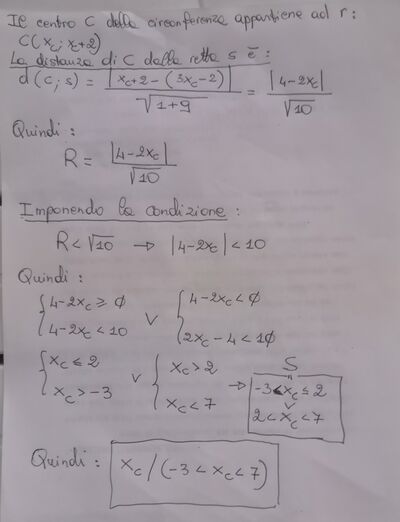 Il centro C della circonferenza appartiene ad r:
C(x_C; x_C+2)
La distanza di C dalla retta s è:
d(c;s) = |x_C+2-(3x_C-2)| / √(1+9) = |4-2x_C| / √10
Quindi:
R = |4-2x_C| / √10
Imponendo la condizione:
R < √10 → |4-2x_C| < 10
Quindi:
{4-2x_C ≥ 0 ∨ {4-2x_C < 0
{4-2x_C < 10 {2x_C-4 < 10
S
{x_C ≤ 2 ∨ {x_C > 2 → -3 < x_C ≤ 2
∨
{x_C > -3 {x_C < 7 2 < x_C < 7
Quindi: x_C / (-3 < x_C < 7)